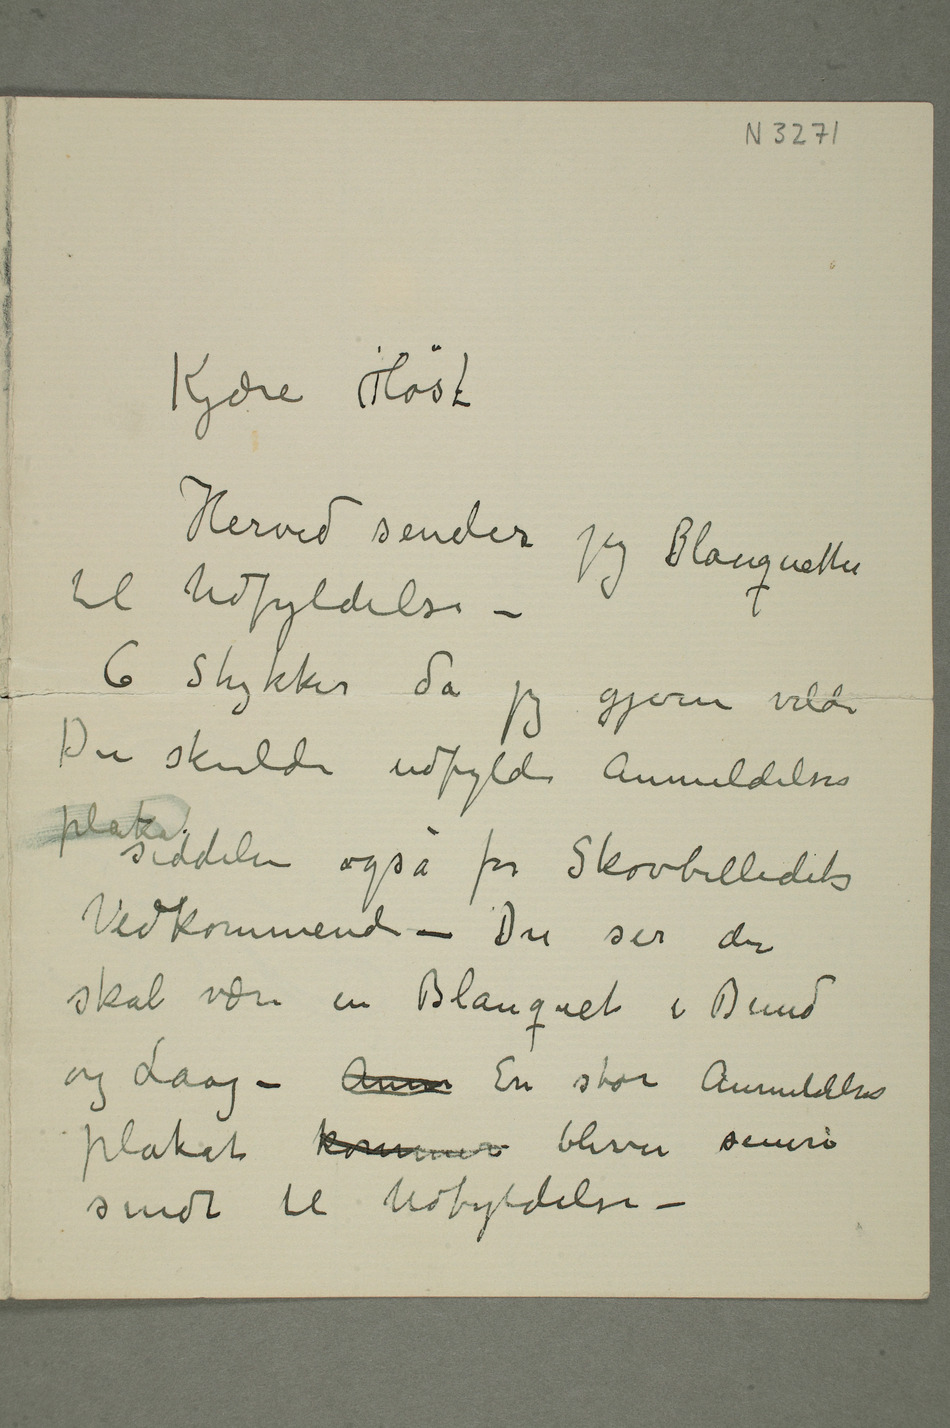 N 3271
Kjære Høst
Herved sender jeg Blanquetter
til Udfyldelse –
6 Stykker da jeg gjerne vilde
Du skulde udfylde Anmeldelses
plakat
seddelen også for Skovbilledets
Vedkommende – Du ser der
skal være en Blanquet i Bund
og Laag – Anm En stor Anmeldelses
plakat kommer bliver senere
sendt til Udfyldelse –